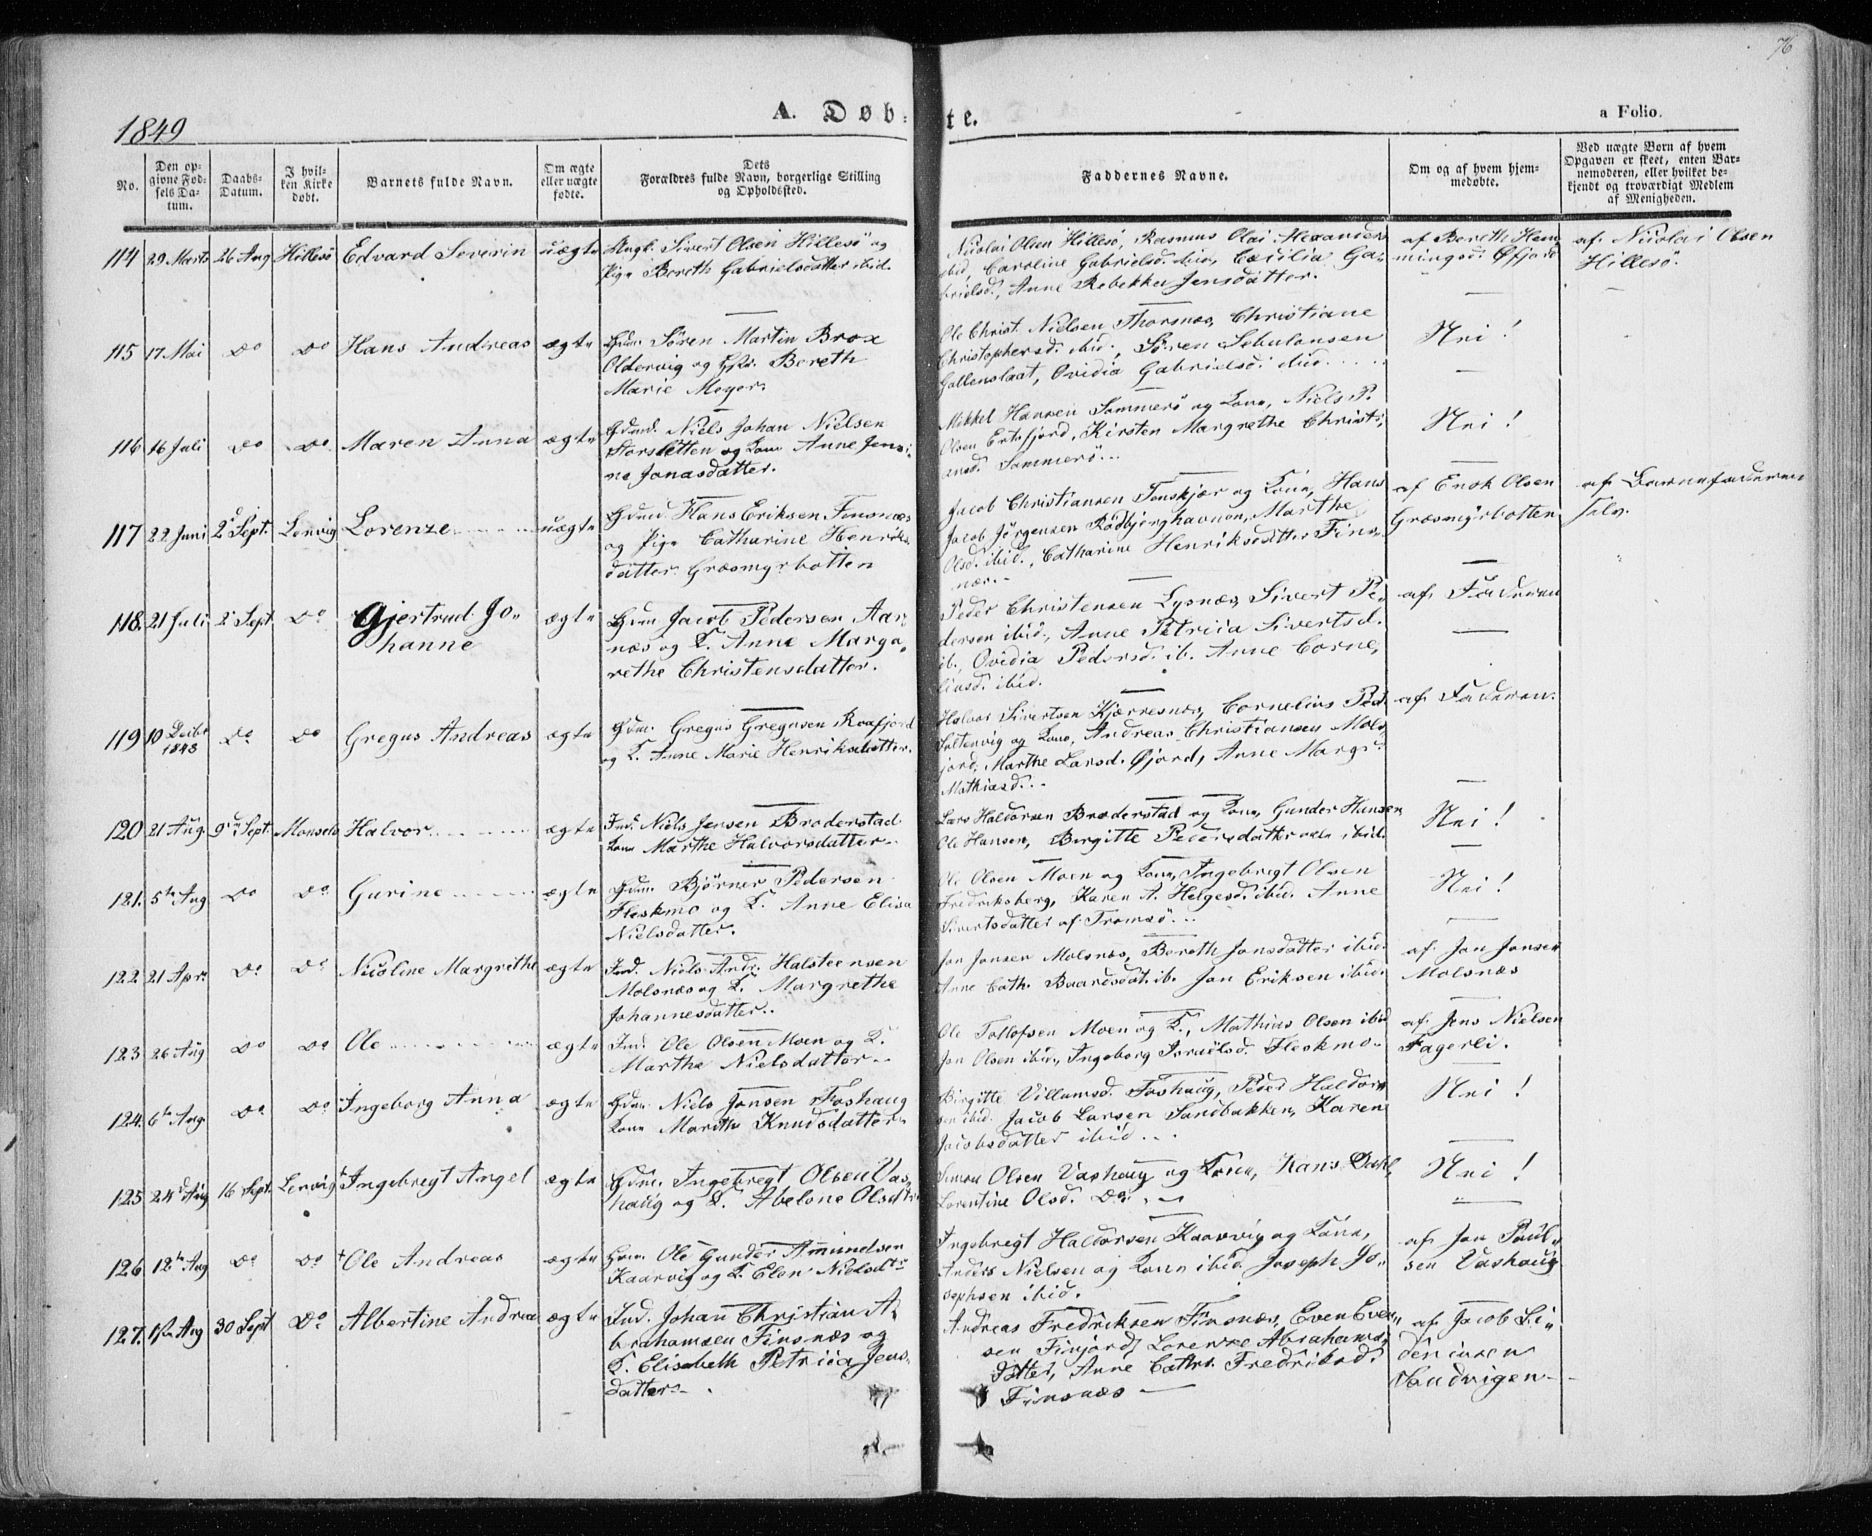 76
1849
A. Døb-
te.
a Folio.
No.
Den op-
givne Fød-
sels Da-
tum.
Daabs-
Datum.
I hvil-
ken Kirke
døbt.
Barnets fulde Navn.
Om ægte
eller uægte
fødte.
Dets
Forældres fulde Navn, borgerlige Stilling
og Opholdssted.
Faddernes Navne.
Om og af hvem hjem-
medøbte.
Ved uægte Børn af hvem
Opgaven er skeet, enten Bar-
nemoderen, eller hvilket be-
kjendt og troværdigt Medlem
af Menigheden.
114 29 Marts 26 Aug Hillesö Edvard Severin uægte Ungk. Sivert Olsen Hillesö og
Pige Bereth Gabrielsdatter ibid.
Nicolai Olsen Hillesö, Rasmus Olai
ibid, Caroline Gabrielsd. ibid, Cæcilia Ga-
brielsd., Anne Rebekka Jensdatter.
af Bereth Hem
mingsd. Øfjord
af Nicolai Olsen
Hillesö.
115 17 Mai Do Do Hans Andreas ægte Gdm. Sören Martin Brox
Oldervig og Hstr. Bereth
Marie Meyer.
Ole Christ. Nielsen Thorsnæs, Christiane
Christophersd. ibid., Sören Sebulonsen
Gallenslaat, Ovidia Gabrielsd. ibid.
Nei!
116 16 Juli Do Do Maren Anna ægte Gdmd. Niels Johan Nielsen
Storsletten og Kone Anne Jensi-
ne Jonasdatter.
Mikkel Hansen Sommerö og Kone, Niels P.
Olsen Ertsfjord, Kirsten Margrethe Christi-
ansd. Sommerö
Nei!
117 22 Juni 2d Sept. Lenvig Lorenze uægte Gdmd. Hans Eriksen Finsnæs
og Pige Catharine Henriks-
datter Græsmyrbotten
Jacob Christiansen Tenskjær og Kone, Hans
Jacob Jörgensen Rödbjerghavnen, Marthe
Olsd. ibid., Catharine Henriksdatter Fins-
næs.
af Enok Olsen
Græsmyrbotten
af Barnefaderen
selv.
118. 21 Juli 2d Sept Do Gjertrud Jo-
hanne ægte Gdm Jacob Pedersen Aar-
næs og K. Anne Marga-
rethe Christensdatter.
Peder Christensen Lysnæs, Sivert Pe-
dersen ibid., Anne Petricia Sivertsd.
ib., Ovidia Pedersd. ib. Anne Corne-
liusd. ibid.
af Faderen
119 10 Decbr
1848 Do Do Gregus Andreas ægte Gdm. Gregus Gregusen Roxfjord
og K. Anne Marie Henriksdatter.
Halvor Sivertsen Kjærresnæs, Cornelius Ped.
Saltenvig og Kone, Andreas Christiansen Mols-
jord, Marthe Larsd. Øjord, Anne Marg.
Mathiasd.
af Faderen.
120 21 Aug. 9de Sept. Monselv Halvor ægte Ind. Niels Jensen Broderstad
Kone Marthe Halvorsdatter
Lars Haldorsen Broderstad og Kone, Gunder Hansen
Ole Hansen, Birgitte Pedersdatter ibid.
Nei!
121. 5te Aug Do Do Gurine ægte Gdm. Björner Pedersen
Fleskmo og K. Anne Elisa
Nielsdatter.
Ole Olsen Moen og Kone, Ingebregt Olsen
Fredriksberg, Karen A. Helgesd. ibid. Anne
Sivertsdatter af Tromsö.
Nei!
122 21 Apr. Do Do Nicoline Margrethe ægte Ind. Niels Andr. Halsteensen
Molsnæs og K. Margrethe
Johannesdatter.
Jon Jonsen Molsnæs, Bereth Jonsdatter ibid.
Anne Cath. Baardsdat. ib. Jon Eriksen ibid.
af Jon Jonsen
Molsnæs
123 26 Aug Do Do Ole ægte Ind. Ole Olsen Moen og K.
Marthe Nielsdatter
Ole Tollofsen Moen og K., Mathias Olsen ibid
Jon Olsen ibid., Ingeborg Israelsd. Fleskmo
af Jens Nielsen
Fagerli.
124. 6te Aug. Do Do Ingeborg Anna ægte Gdm. Niels Jonsen Foshaug
Kone Marith Knudsdatter.
Birgitte Villumsd. Foshaug, Peder Haldor-
sen ibid. Jacob Larsen Sandbakken, Karen
Jacobsdatter ibid
Nei!
125 24d Aug 16 Sept. Lenvig Ingebregt Angel ægte Gdm. Ingebregt Olsen Vas-
haug og K. Abelone Olsdtr.
Simon Olsen Vashaug og Kone, Hans Dahl,
Lorentine Olsd. Do.
Nei!
126 12te Aug Do Do Ole Andreas ægte Gdm. Ole Gunder Amundsen
Kaarvig og K. Elen Nielsdtr
Ingebregt Haldorsen Kaarvig og Kone,
Anders Nielsen og Kone ibid. Joseph Jo-
sephsen ibid.
af Jon Paul-
sen Vashaug
127. 1ste Aug 30 Sept Do Albertine Andrea ægte Ind. Johan Christian A-
brahamsen Finsnæs og
K. Elisabeth Petricia Jens-
datter
Andreas Fredriksen Finsnæs, Even Even-
sen Finfjord, Lorenze Abrahams-
datter, Anne Cathr. Fredriksd.
Finsnæs
af Jacob Si-
deniusen
Sandvigen